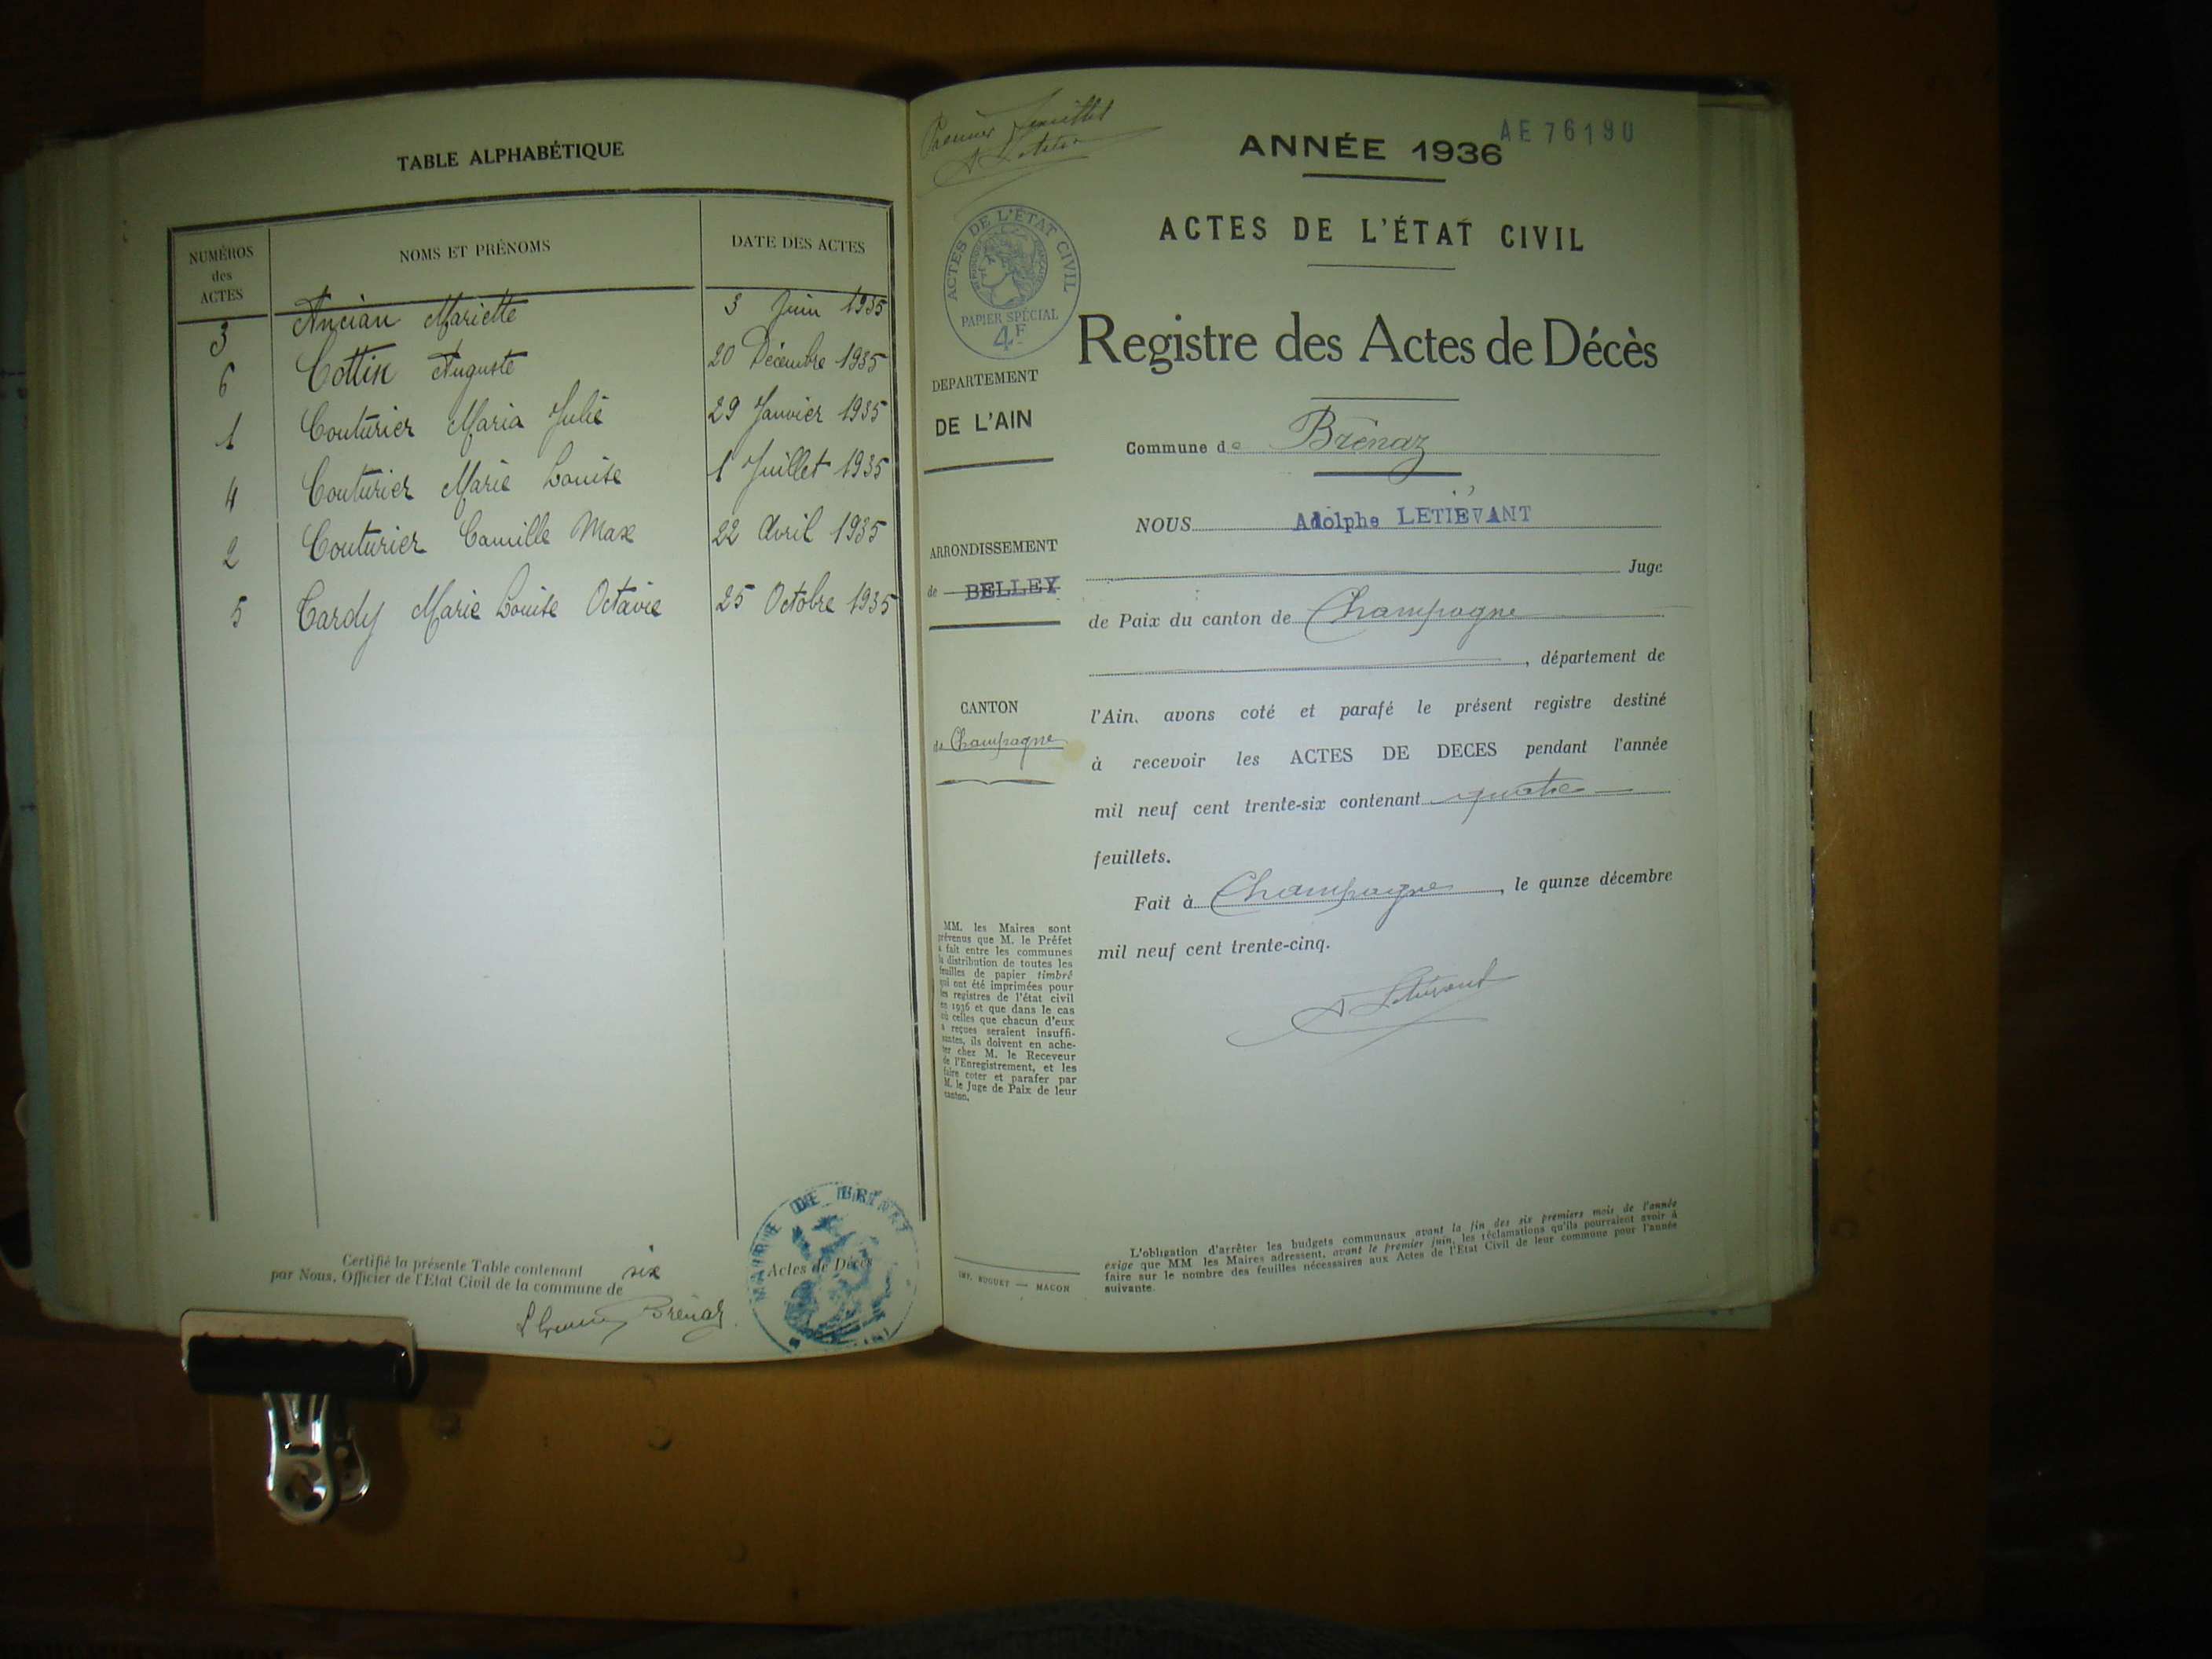 TABLE ALPHABÉTIQUE
NUMÉROS des ACTES NOMS ET PRÉNOMS DATE DES ACTES
3 Ancian Mariette 3 Juin 1935
6 Cottin Auguste 20 Décembre 1935
1 Couturier Maria Julie 29 Janvier 1935
4 Couturier Marie Louise 1 Juillet 1935
2 Couturier Camille Max 22 Avril 1935
5 Cardy Marie Louise Octavie 25 Octobre 1935
Certifié la présente Table contenant six
par Nous, Officier de l'Etat Civil de la commune de
Brénaz
MAIRIE DE BRÉNAZ
Actes de Décès
Premier feuillet
AE 76190
ANNÉE 1936
ACTES DE L'ÉTAT CIVIL
ACTES DE L'ÉTAT CIVIL
RÉPUBLIQUE FRANÇAISE
PAPIER SPÉCIAL
4F
Registre des Actes de Décès
DEPARTEMENT
DE L'AIN
Commune de Brénaz
NOUS Adolphe LETIÉVANT
ARRONDISSEMENT
de BELLEY
Juge
de Paix du canton de Champagne
, département de
CANTON
de Champagne
l'Ain, avons coté et parafé le présent registre destiné
à recevoir les ACTES DE DECES pendant l'année
mil neuf cent trente-six contenant quatre
feuillets.
Fait à Champagne, le quinze décembre
mil neuf cent trente-cinq.
A Letiévant
MM. les Maires sont
prévenus que M. le Préfet
a fait entre les communes
la distribution de toutes les
feuilles de papier timbré
qui ont été imprimées pour
les registres de l'état civil
en 1936 et que dans le cas
où celles que chacun d'eux
a reçues seraient insuffi-
santes, ils doivent en ache-
ter chez M. le Receveur
de l'Enregistrement, et les
faire coter et parafer par
M. le Juge de Paix de leur
canton.
IMP. BUGUET — MACON
L'obligation d'arrêter les budgets communaux avant la fin des six premiers mois de l'année
exige que MM les Maires adressent, avant le premier juin, les réclamations qu'ils pourraient avoir à
faire sur le nombre des feuilles nécessaires aux Actes de l'Etat Civil de leur commune pour l'année
suivante.